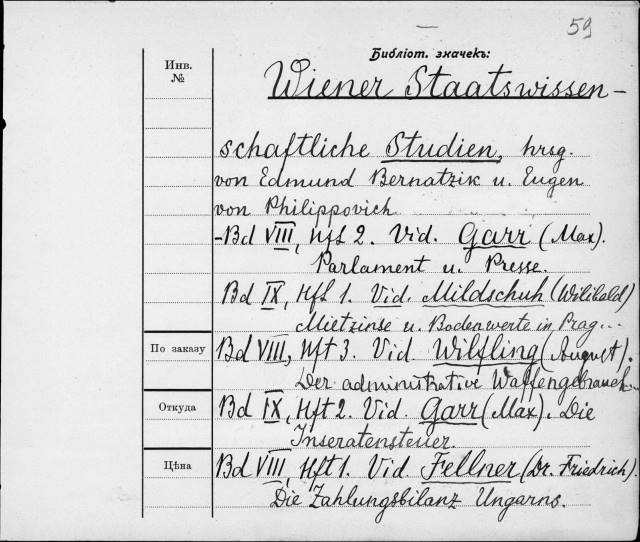 59
Библіот. значекъ:
Инв.
№
Wiener Staatswissen-
schaftliche Studien, hrsg.
von Edmund Bernatzik u. Eugen
von Philippovich
- Bd VIII, Hft 2. Vid. Garr (Max).
Parlament u. Presse.
Bd IX, Hft 1. Vid. Mildschuh (Wilibald)
Mietzinse u. Bodenwerte in Prag...
По заказу
Bd VIII, Hft 3. Vid Wilfling (August).
Der administrative Waffengebrauch
Откуда
Bd IX, Hft 2. Vid. Garr (Max). Die
Inseratensteuer.
Цѣна
Bd VIII, Hft 1. Vid Fellner (Dr. Friedrich).
Die Zahlungsbilanz Ungarns.